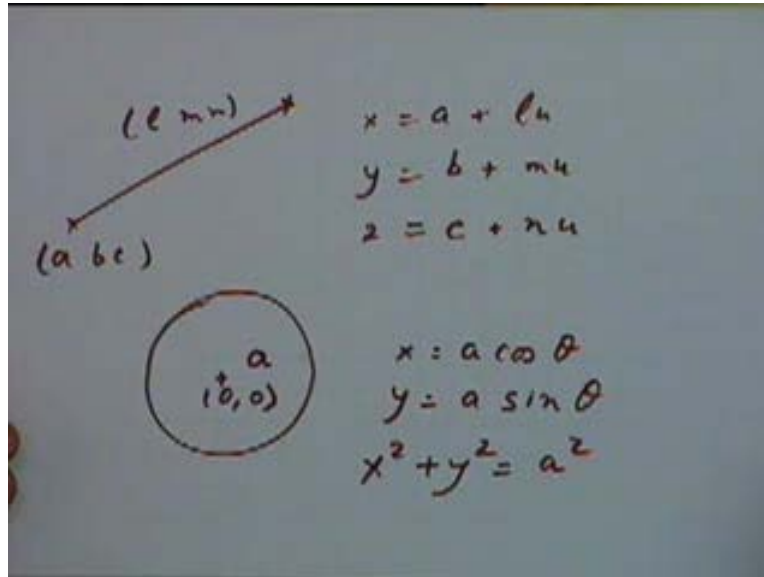 (l m n)
x = a + lu
y = b + mu
z = c + nu
(a b c)
a
(0, 0)
x = a cos θ
y = a sin θ
x² + y² = a²